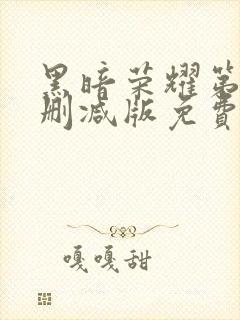 黑暗荣耀第
删减版免費
嘎嘎甜